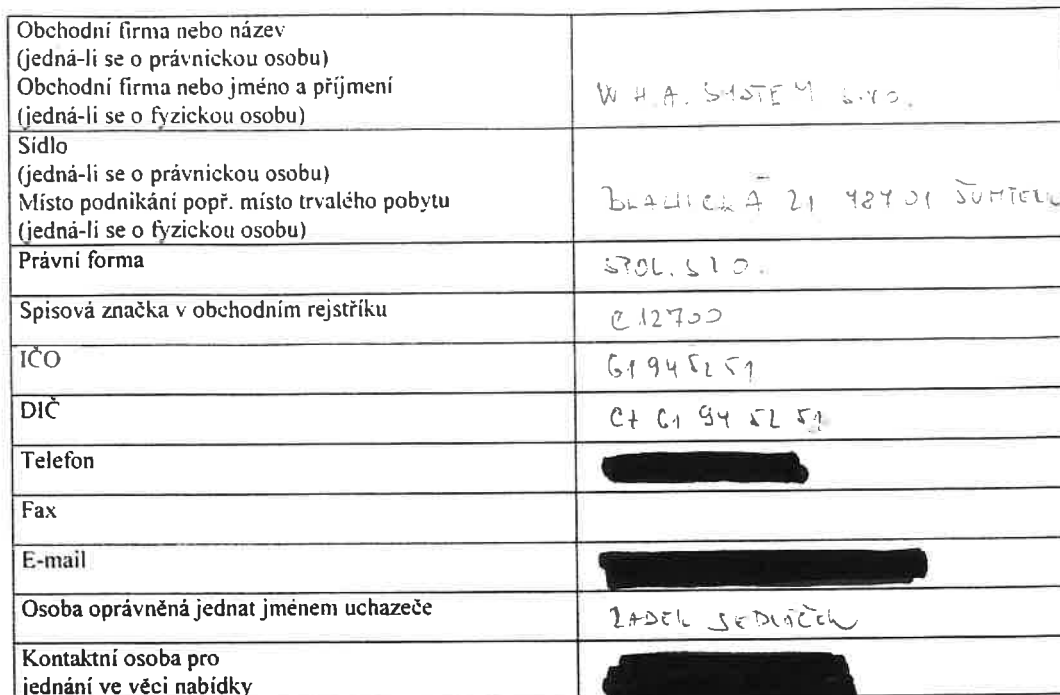 Obchodní firma nebo název
(jedná-li se o právnickou osobu)
Obchodní firma nebo jméno a příjmení
(jedná-li se o fyzickou osobu)
W.H.A. SYSTEM s.r.o.
Sídlo
(jedná-li se o právnickou osobu)
Místo podnikání popř. místo trvalého pobytu
(jedná-li se o fyzickou osobu)
21 787 01
Právní forma
SPOL. S R O.
Spisová značka v obchodním rejstříku
C 12700
IČO
61 94 52 51
DIČ
CZ 61 94 52 51
Telefon
Fax
E-mail
Osoba oprávněná jednat jménem uchazeče
RADEK SEDLÁČEK
Kontaktní osoba pro
jednání ve věci nabídky